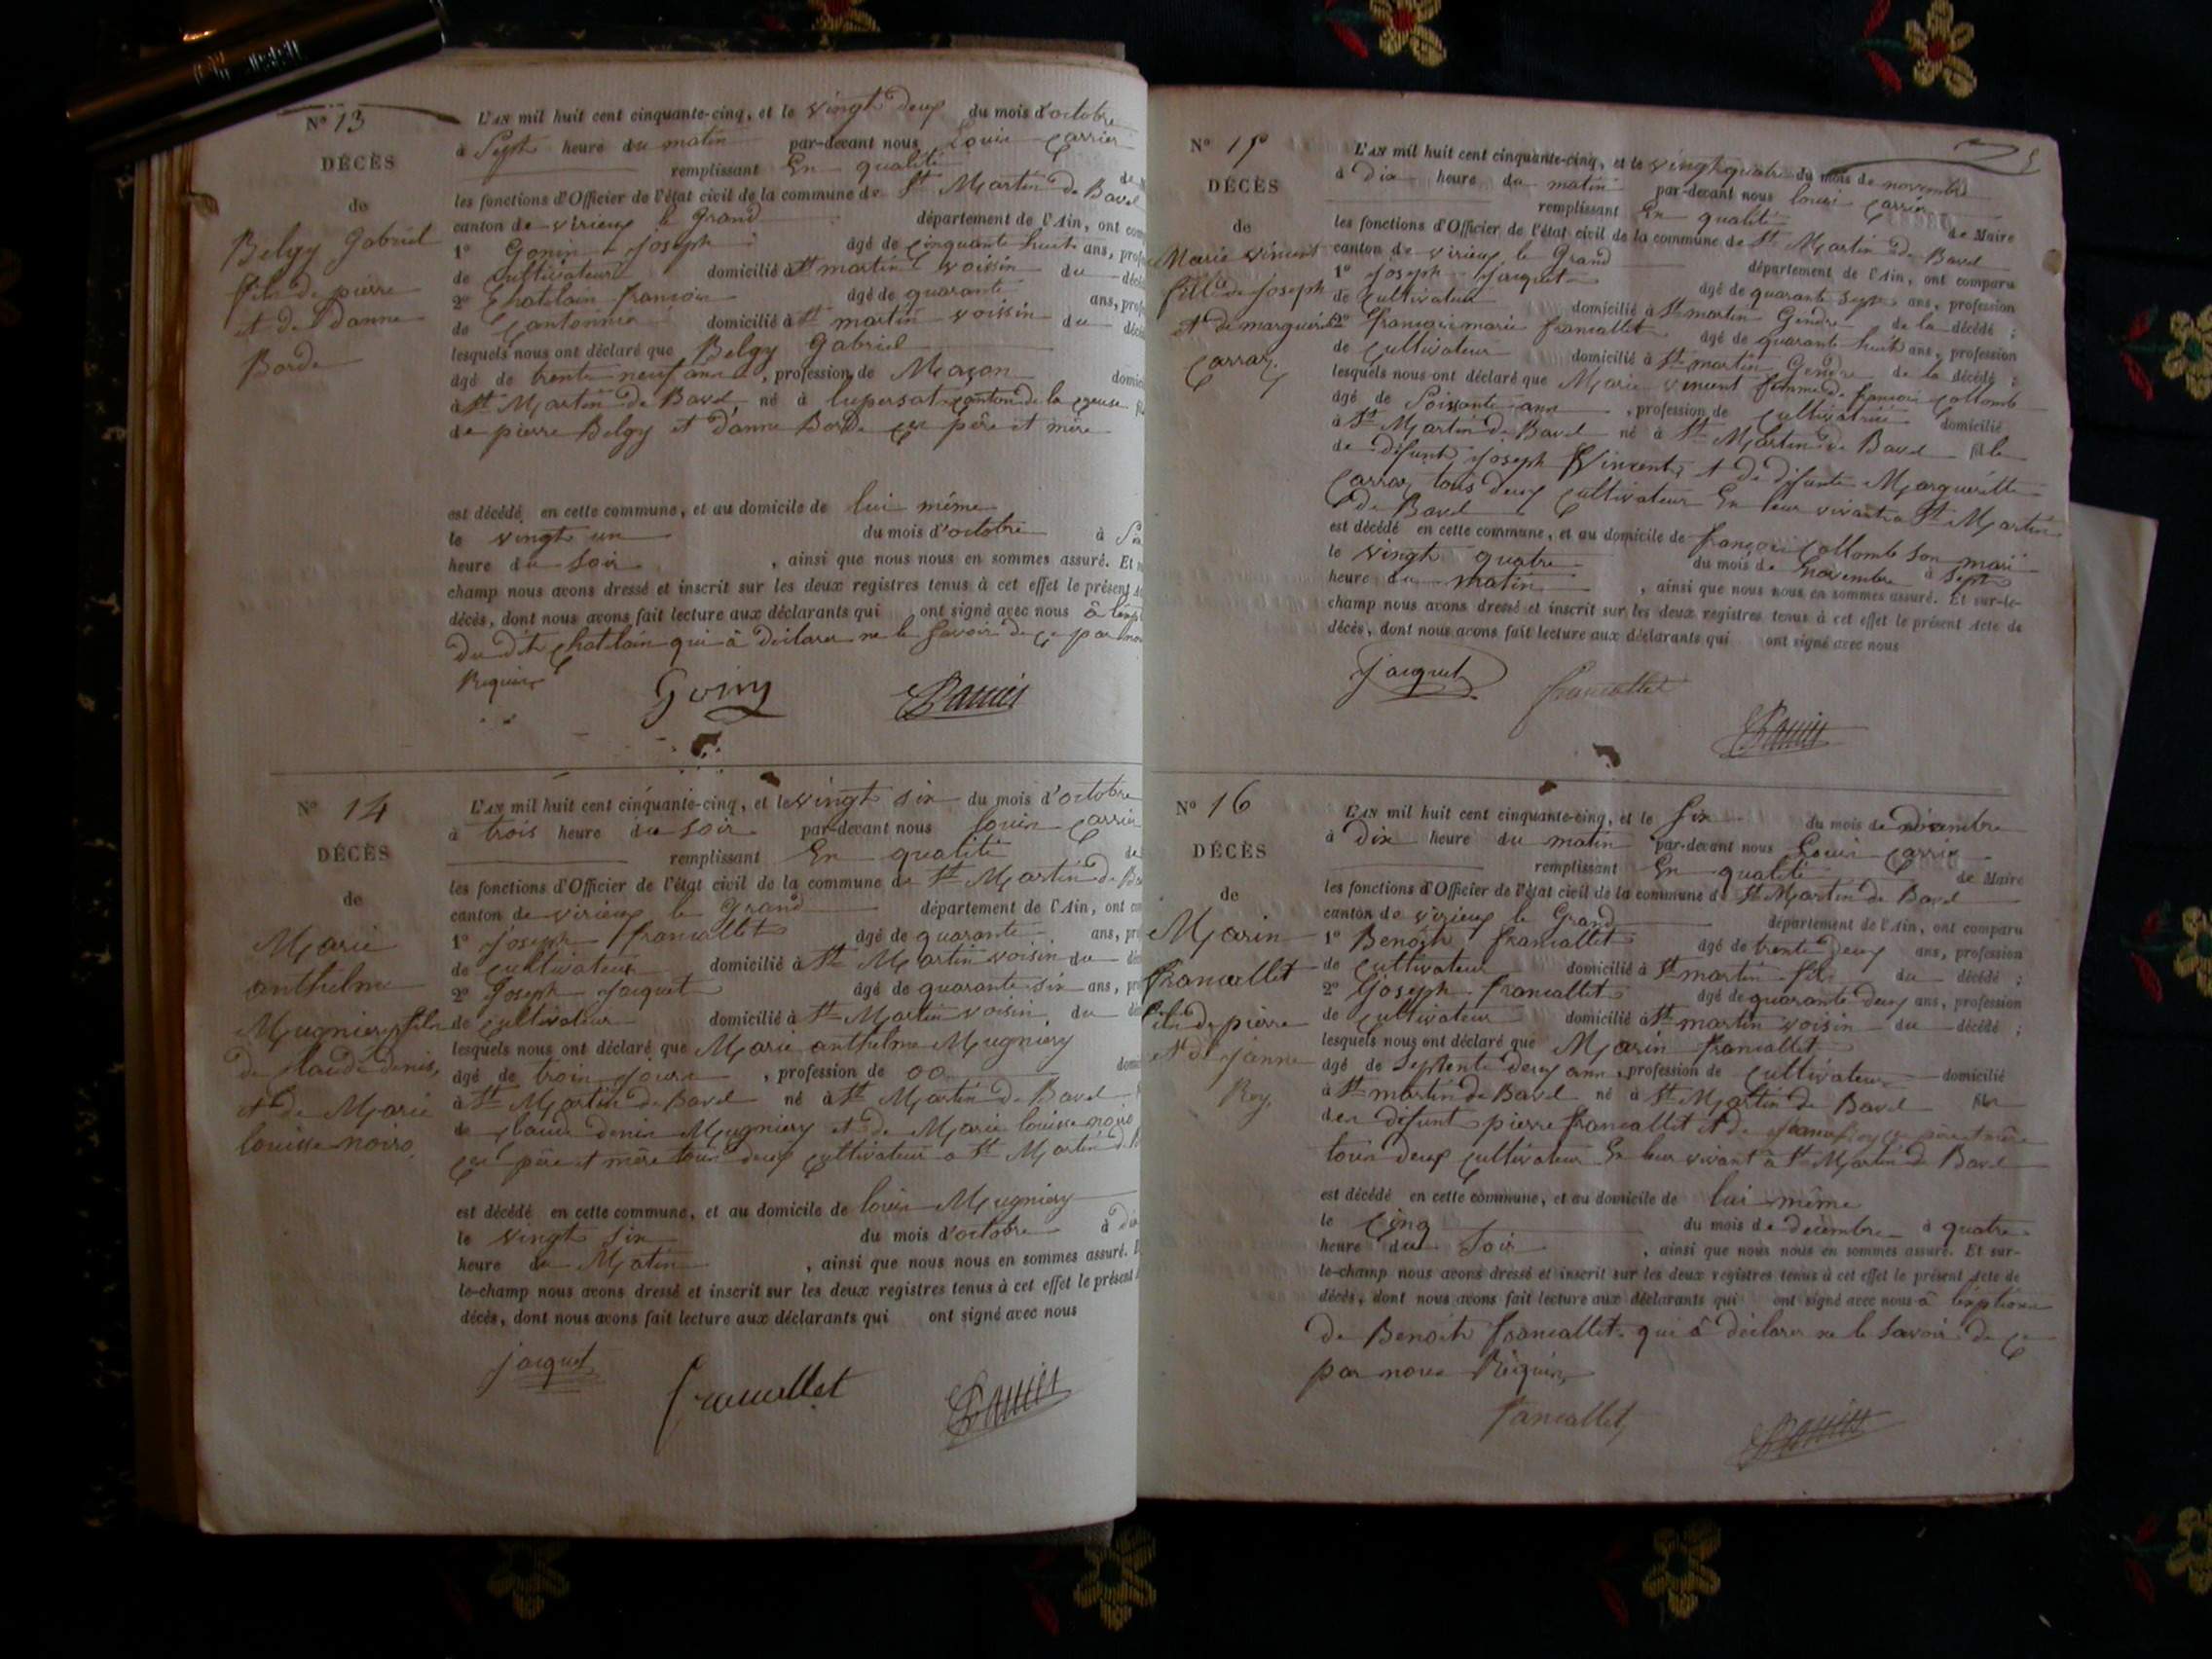 N° 13
DÉCÈS
de
Belgy Gabriel
fils de pierre
et de danne
Borde
L'AN mil huit cent cinquante-cinq, et le vingt deux du mois d'octobre
à Sept heure du matin par-devant nous Louis Carrier
remplissant En qualité de
les fonctions d'Officier de l'état civil de la commune de St Martin de Bavel
canton de virieux le Grand département de l'Ain, ont
1° Gonin joseph âgé de cinquante huit ans,
de Cultivateur domicilié à St martin voissin du
2° Chatelain francois âgé de quarante ans,
de Cantonnier domicilié à St martin voissin du
lesquels nous ont déclaré que Belgy Gabriel
âgé de trente neuf ans, profession de Maçon
à St Martin de Bavel, né à lupersat canton de la creuse
de pierre Belgy et d'anne Borde ces père et mère
est décédé en cette commune, et au domicile de lui même
le vingt un du mois d'octobre à
heure du soir, ainsi que nous nous en sommes assuré. Et
champ nous avons dressé et inscrit sur les deux registres tenus à cet effet le présent
décès, dont nous avons fait lecture aux déclarants qui ont signé avec nous à
du dit Chatelain qui à déclarer ne le savoir de ce par nous
Requis
Gonin Carrier
N° 14
DÉCÈS
de
Marie
anthelme
Mugniery fils
de Claude denis,
et de Marie
louisse noiro
L'AN mil huit cent cinquante-cinq, et le vingt six du mois d'octobre
à trois heure du soir par-devant nous louis Carrier
remplissant En qualité de
les fonctions d'Officier de l'état civil de la commune de St Martin de
canton de virieux le Grand département de l'Ain, ont
1° joseph francallet âgé de quarante ans,
de cultivateur domicilié à St Martin voisin du
2° Joseph Jacquet âgé de quarante six ans,
de cultivateur domicilié à St Martin voisin du
lesquels nous ont déclaré que Marie anthelme Mugniery
âgé de trois jours, profession de 00
à St Martin de Bavel né à St Martin de Bavel
de Claude denis Mugniery et de Marie louisse noiro
ces père et mère tous deux cultivateur a St Martin de
est décédé en cette commune, et au domicile de louis Mugniery
le vingt six du mois d'octobre à
heure du Matin, ainsi que nous nous en sommes assuré.
le-champ nous avons dressé et inscrit sur les deux registres tenus à cet effet le présent
décès, dont nous avons fait lecture aux déclarants qui ont signé avec nous
jacquet francallet Carrier
N° 15
DÉCÈS
de
Marie vincent
fille de joseph
et de marguerite
Carraz
L'AN mil huit cent cinquante-cinq, et le vingt quatre du mois de novembre
à Dix heure du matin par-devant nous louis Carrier
remplissant En qualité de Maire
les fonctions d'Officier de l'état civil de la commune de St Martin de Bavel
canton de virieux le Grand département de l'Ain, ont comparu
1° Joseph Jacquet âgé de quarante sept ans, profession
de Cultivateur domicilié à St martin Gendre de la décédé ;
2° francoi marie francallet âgé de quarante huit ans, profession
de Cultivateur domicilié à St martin Gendre de la décédé ;
lesquels nous ont déclaré que Marie vincent femme de francois Collomb
âgé de Soissante ans, profession de Cultivatrice domicilié
à St Martin de Bavel né à St Martin de Bavel fille
de difunt joseph Vincent, et de difunte Marguerite
Carraz tous deux Cultivateur En leur vivant a St Martin
de Bavel
est décédé en cette commune, et au domicile de françois Collomb son mari
le vingt quatre du mois de novembre à Sept
heure du matin, ainsi que nous nous en sommes assuré. Et sur-le-
champ nous avons dressé et inscrit sur les deux registres tenus à cet effet le présent Acte de
décès, dont nous avons fait lecture aux déclarants qui ont signé avec nous
jacquet francallet Carrier
N° 16
DÉCÈS
de
Marin
francallet
fils de pierre
et de janne
Roy
L'AN mil huit cent cinquante-cinq, et le six du mois de décembre
à Dix heure du matin par-devant nous Louis Carrier
remplissant En qualité de Maire
les fonctions d'Officier de l'état civil de la commune de St Martin de Bavel
canton de virieux le Grand département de l'Ain, ont comparu
1° Benoît francallet âgé de trente deux ans, profession
de Cultivateur domicilié à St martin fils du décédé ;
2° Joseph francallet âgé de quarante deux ans, profession
de Cultivateur domicilié à St martin voisin du décédé ;
lesquels nous ont déclaré que Marin francallet
âgé de Septente deux ans, profession de Cultivateur domicilié
à St martin de Bavel né à St Martin de Bavel fils
des difunt pierre francallet et de janne Roy ces père et mère
tous deux Cultivateur En leur vivant à St Martin de Bavel
est décédé en cette commune, et au domicile de lui même
le Cinq du mois de decembre à quatre
heure du Soir, ainsi que nous nous en sommes assuré. Et sur-
le-champ nous avons dressé et inscrit sur les deux registres tenus à cet effet le présent Acte de
décès, dont nous avons fait lecture aux déclarants qui ont signé avec nous à lexption
de Benoit francallet qui à déclarer ne le savoir de ce
par nous Requis,
francallet Carrier